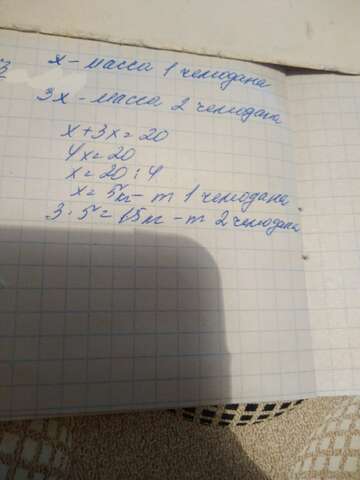 3
x - масса 1 чемодана
3x - масса 2 чемодана
x + 3x = 20
4x = 20
x = 20 : 4
x = 5кг - m 1 чемодана
3 · 5 = 15кг - m 2 чемодана